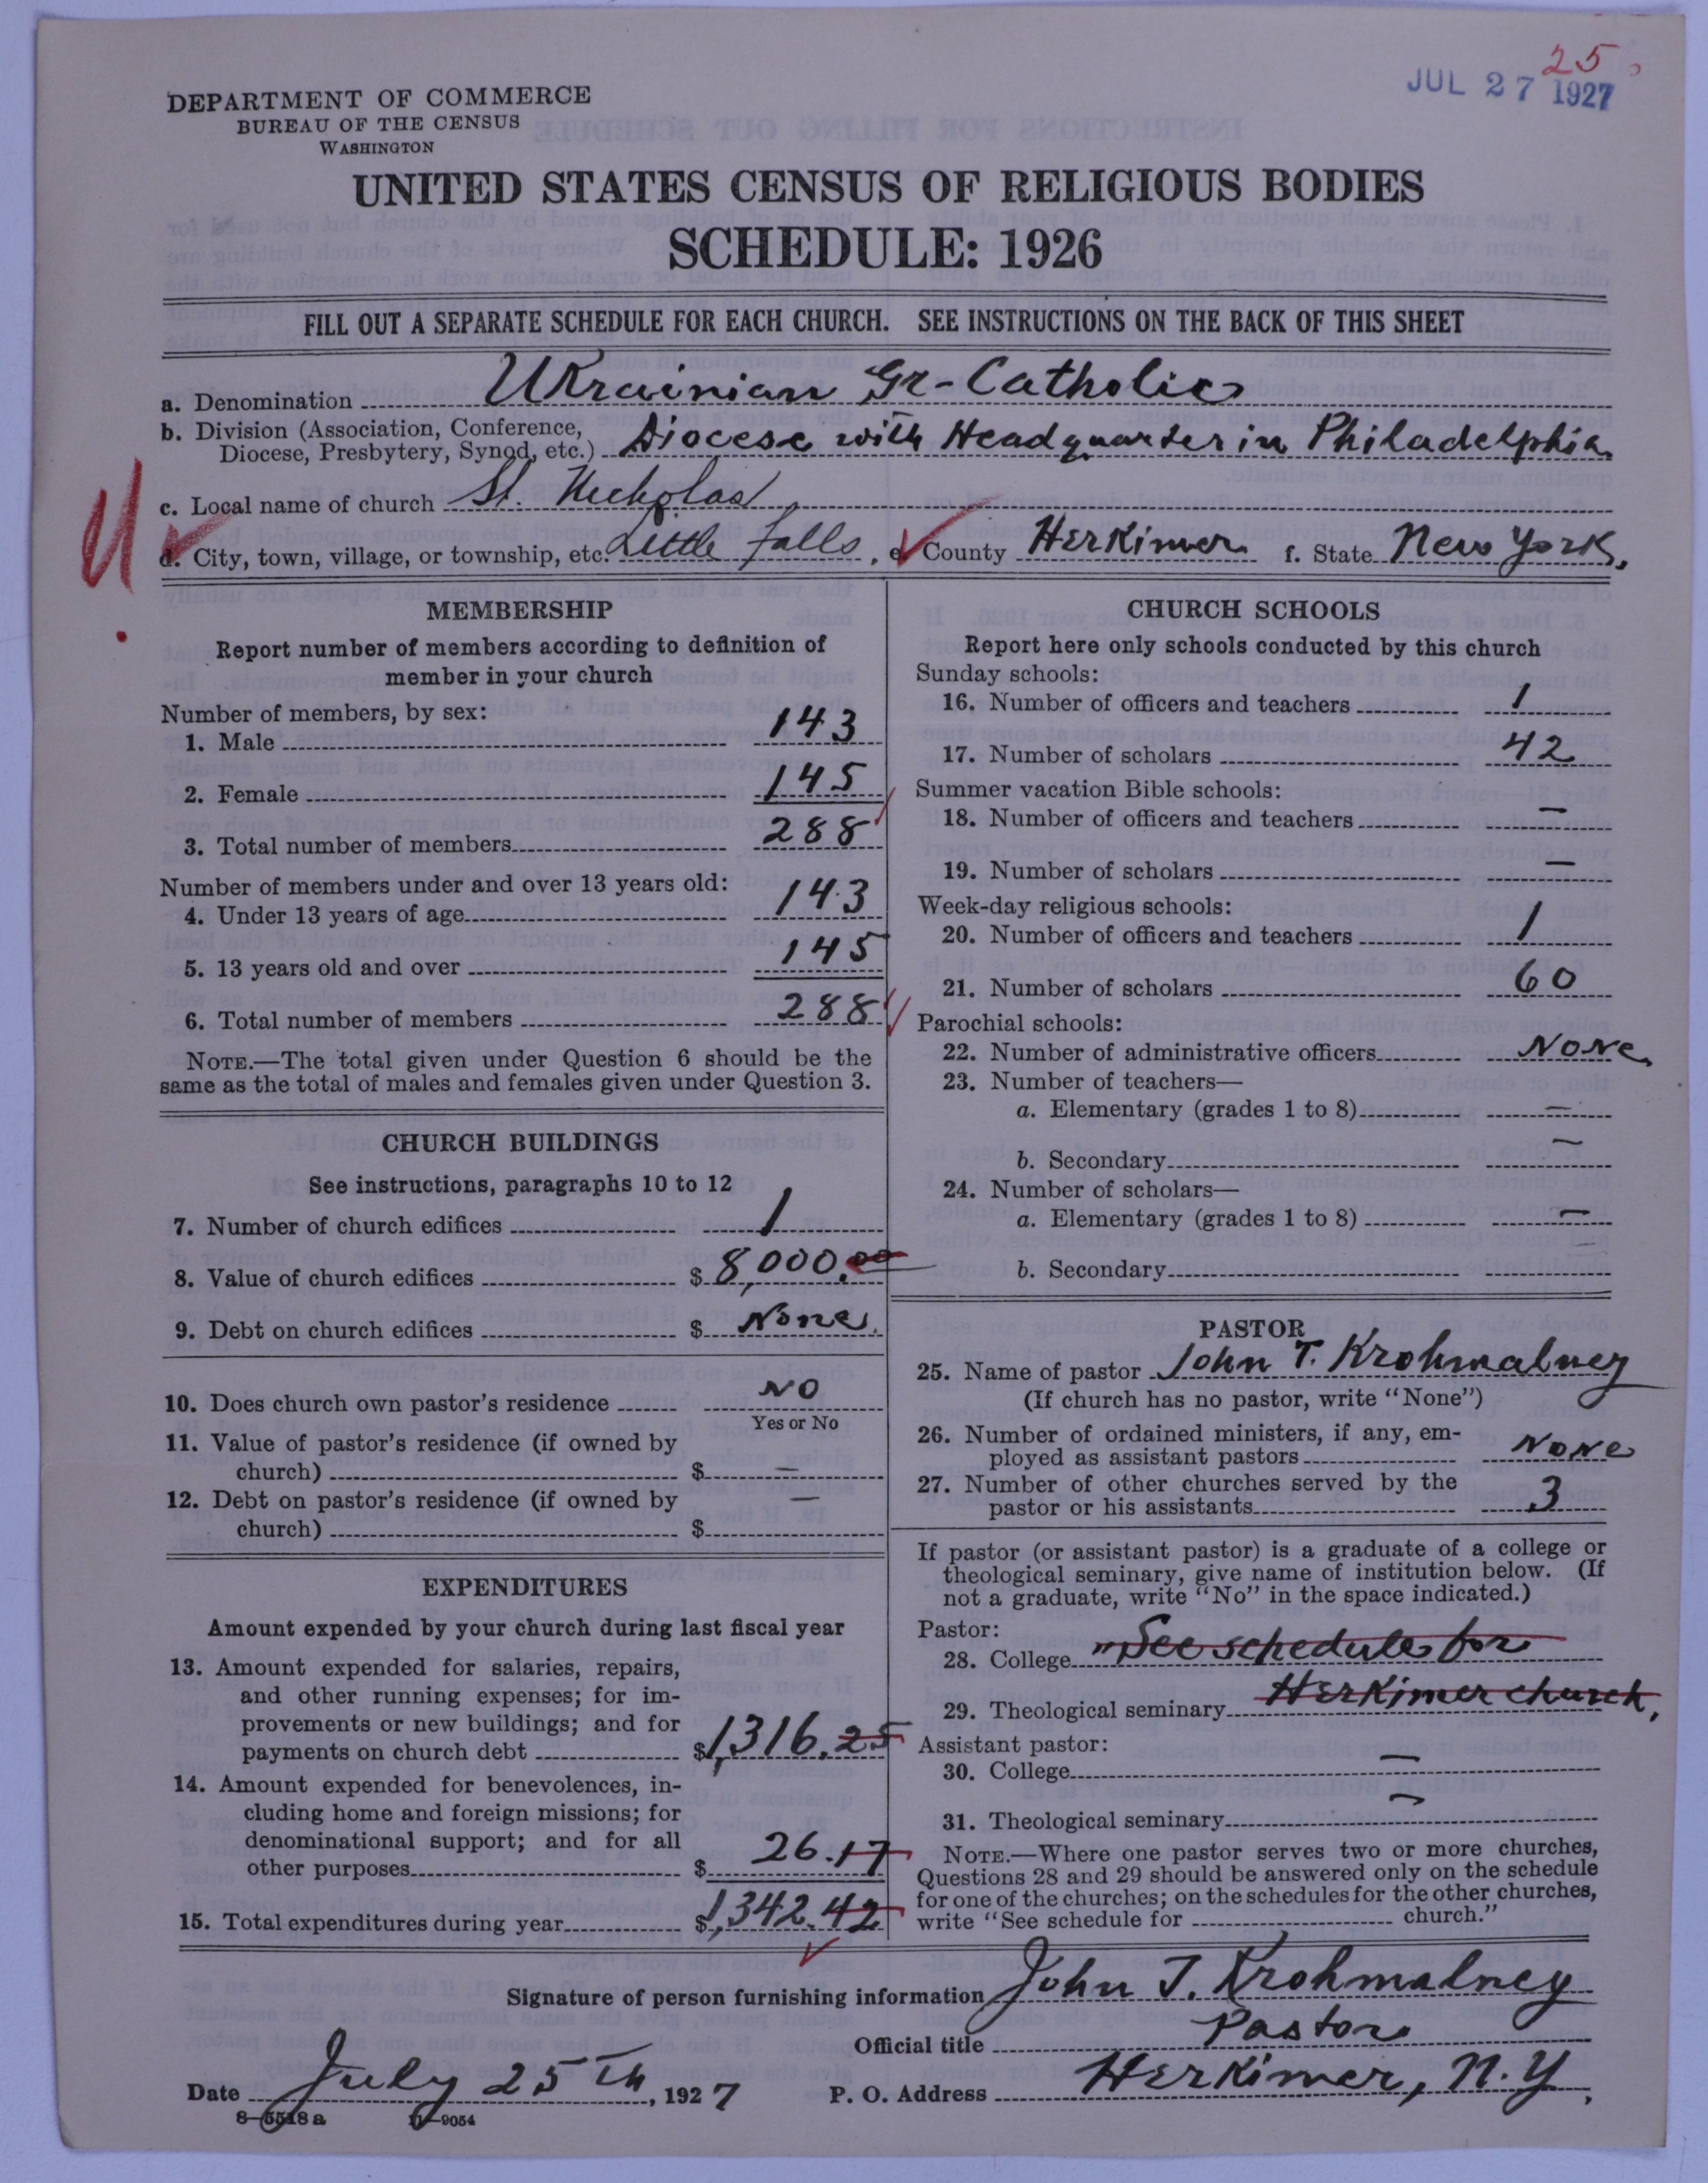 25
JUL 27 1927
DEPARTMENT OF COMMERCE
BUREAU OF THE CENSUS
WASHINGTON
UNITED STATES CENSUS OF RELIGIOUS BODIES
SCHEDULE: 1926
FILL OUT A SEPARATE SCHEDULE FOR EACH CHURCH. SEE INSTRUCTIONS ON THE BACK OF THIS SHEET
a. Denomination Ukrainian Gr-Catholic
b. Division (Association, Conference, Diocese, Presbytery, Synod, etc.) Diocese with Headquarter in Philadelphia.
c. Local name of church St. Nicholas
d. City, town, village, or township, etc. Little Falls, e. County Herkimer f. State New York.
MEMBERSHIP
Report number of members according to definition of
member in your church
Number of members, by sex:
1. Male 143
2. Female 145
3. Total number of members 288
Number of members under and over 13 years old:
4. Under 13 years of age 143
5. 13 years old and over 145
6. Total number of members 288
NOTE.—The total given under Question 6 should be the
same as the total of males and females given under Question 3.
CHURCH BUILDINGS
See instructions, paragraphs 10 to 12
7. Number of church edifices 1
8. Value of church edifices $ 8,000.00
9. Debt on church edifices $ None.
10. Does church own pastor's residence NO
Yes or No
11. Value of pastor's residence (if owned by
church) $ —
12. Debt on pastor's residence (if owned by
church) $ —
EXPENDITURES
Amount expended by your church during last fiscal year
13. Amount expended for salaries, repairs,
and other running expenses; for im-
provements or new buildings; and for
payments on church debt $ 1,316.25
14. Amount expended for benevolences, in-
cluding home and foreign missions; for
denominational support; and for all
other purposes $ 26.17
15. Total expenditures during year $ 1,342.42
CHURCH SCHOOLS
Report here only schools conducted by this church
Sunday schools:
16. Number of officers and teachers 1
17. Number of scholars 42
Summer vacation Bible schools:
18. Number of officers and teachers —
19. Number of scholars —
Week-day religious schools:
20. Number of officers and teachers 1
21. Number of scholars 60
Parochial schools:
22. Number of administrative officers None.
23. Number of teachers—
a. Elementary (grades 1 to 8) —
b. Secondary —
24. Number of scholars—
a. Elementary (grades 1 to 8) —
b. Secondary
PASTOR
25. Name of pastor John T. Krohmalney
(If church has no pastor, write "None")
26. Number of ordained ministers, if any, em-
ployed as assistant pastors None
27. Number of other churches served by the
pastor or his assistants 3
If pastor (or assistant pastor) is a graduate of a college or
theological seminary, give name of institution below. (If
not a graduate, write "No" in the space indicated.)
Pastor:
28. College "See schedule for
29. Theological seminary Herkimer church.
Assistant pastor:
30. College —
31. Theological seminary —
NOTE.—Where one pastor serves two or more churches,
Questions 28 and 29 should be answered only on the schedule
for one of the churches; on the schedules for the other churches,
write "See schedule for church."
Signature of person furnishing information John T. Krohmalney
Official title Pastor
Date July 25th, 1927 P. O. Address Herkimer, N.Y.
8—5518 a 11—9054